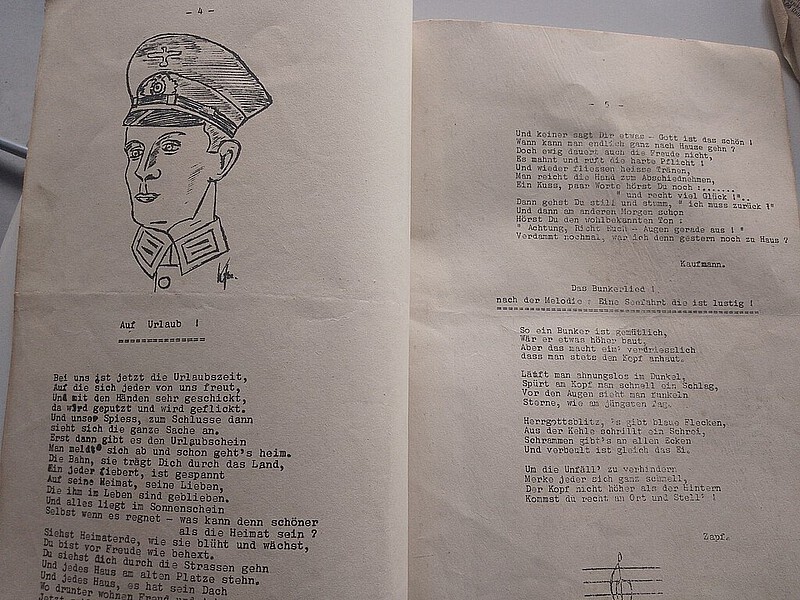 - 4 -
Auf Urlaub !
Bei uns ist jetzt die Urlaubszeit,
Auf die sich jeder von uns freut,
Und mit den Händen sehr geschickt,
da wird geputzt und wird geflickt.
Und unser Spiess, zum Schlusse dann
sieht sich die ganze Sache an.
Erst dann gibt es den Urlaubschein
Man meldet sich ab und schon geht's heim.
Die Bahn, sie trägt Dich durch das Land,
Ein jeder fiebert, ist gespannt
Auf seine Heimat, seine Lieben,
Die ihm im Leben sind geblieben.
Und alles liegt im Sonnenschein
Selbst wenn es regnet - was kann denn schöner
als die Heimat sein ?
Siehst Heimaterde, wie sie blüht und wächst,
Du bist vor Freude wie behext.
Du siehst dich durch die Strassen gehn
Und jedes Haus am alten Platze stehn.
Und jedes Haus, es hat sein Dach
Wo drunter wohnen Freud und
- 5 -
Und keiner sagt Dir etwas - Gott ist das schön !
Wann kann man endlich ganz nach Hause gehn ?
Doch ewig dauert auch die Freude nicht,
Es mahnt und ruft die harte Pflicht !
Und wieder fliessen heisse Tränen,
Man reicht die Hand zum Abschiednehmen,
Ein Kuss, paar Worte hörst Du noch :.......
" und recht viel Glück !"..
Dann gehst Du still und stumm, " ich muss zurück !"
Und dann am anderen Morgen schon
Hörst Du den wohlbekannten Ton :
" Achtung, Richt Euch - Augen gerade aus ! "
Verdammt nochmal, war ich denn gestern noch zu Haus ?
Kaufmann.
Das Bunkerlied !
nach der Melodie : Eine Seefahrt die ist lustig !
So ein Bunker ist gemütlich,
Wär er etwas höher baut,
Aber das macht ein' verdriesslich
dass man stets den Kopf anhaut.
Läuft man ahnungslos im Dunkel,
Spürt am Kopf man schnell ein Schlag,
Vor den Augen sieht man funkeln
Sterne, wie am jüngsten Tag.
Herrgottsblitz, 's gibt blaue Flecken,
Aus der Kehle schrillt ein Schrei,
Schrammen gibt's an allen Ecken
Und verbeult ist gleich das Ei.
Um die Unfäll' zu verhindern
Merke jeder sich ganz schnell,
Der Kopf nicht höher als der Hintern
Kommst du recht an Ort und Stell' !
Zapf.